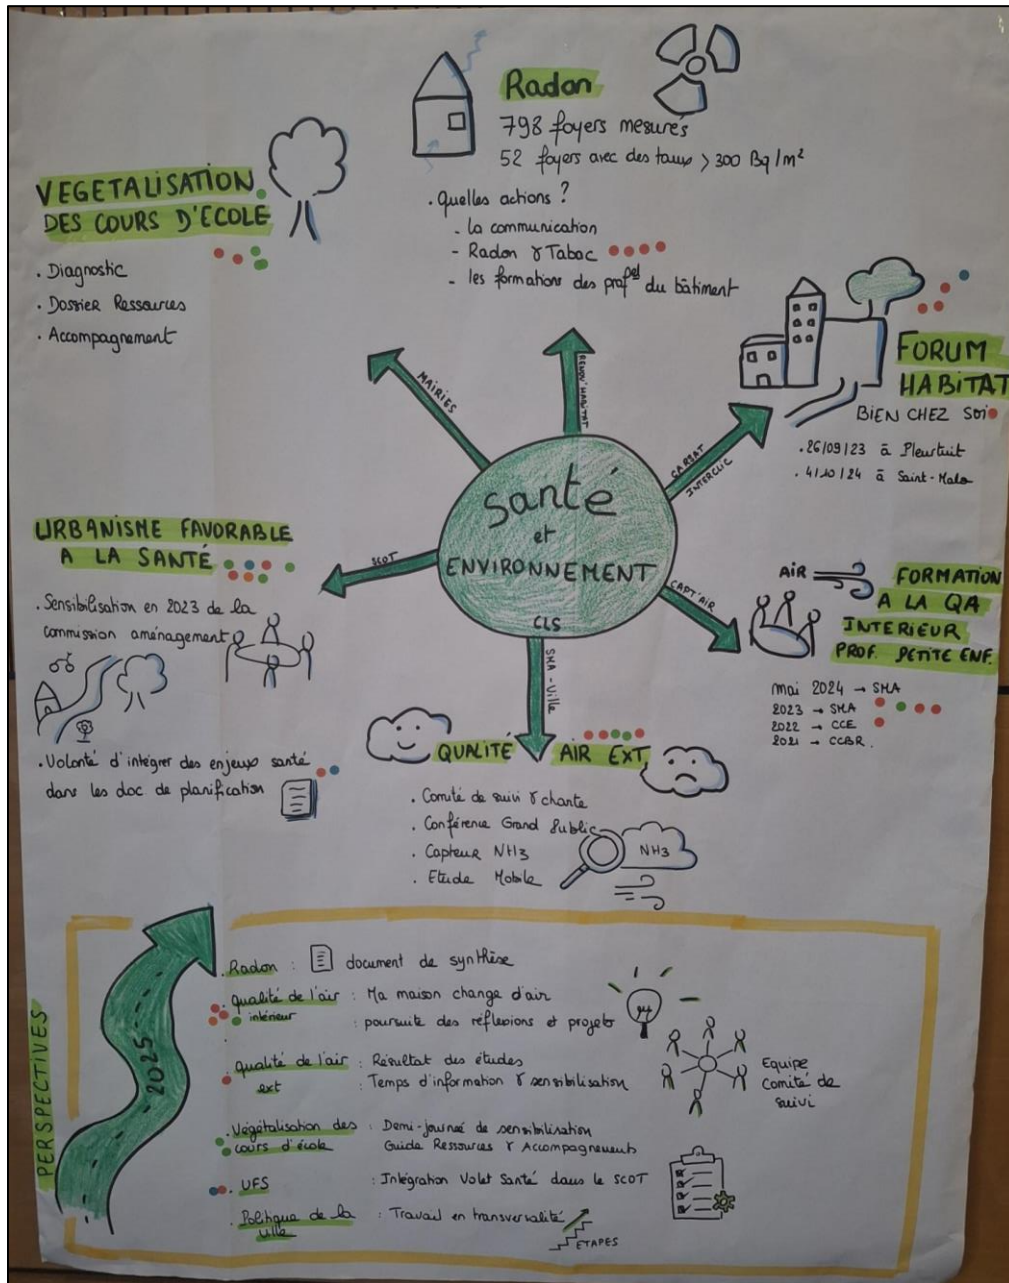 Radon
798 foyers mesurés
52 foyers avec des taux > 300 Bq/m²
. Quelles actions ?
- la communication
- Radon & Tabac
- les formations des prof^el du bâtiment
VEGETALISATION
DES COURS D'ECOLE
. Diagnostic
. Dossier Ressources
. Accompagnement
MAIRIES
RENOV'HABITAT
CARSAT
INTERCLIC
FORUM
HABITAT
BIEN CHEZ SOI
. 26/09/23 à Pleurtuit
. 4/10/24 à Saint-Malo
Santé
et
ENVIRONNEMENT
CLS
URBANISME FAVORABLE
A LA SANTÉ
SCOT
. Sensibilisation en 2023 de la
commission aménagement
. Volonté d'intégrer des enjeux santé
dans les doc. de planification
CAPT'AIR
AIR
FORMATION
A LA QA
INTERIEUR
PROF. PETITE ENF.
mai 2024 → SMA
2023 → SMA
2022 → CCE
2021 → CCBR.
SMA - Ville
QUALITÉ AIR EXT
. Comité de suivi & charte
. Conférence Grand Public
. Capteur NH3
. Etude Mobile
NH3
PERSPECTIVES
2025
. Radon : document de synthèse
. Qualité de l'air : Ma maison change d'air
intérieur : poursuite des réflexions et projets
. Qualité de l'air : Résultat des études
ext : Temps d'information & sensibilisation
Equipe
Comité de
suivi
. Végétalisation des : Demi-journée de sensibilisation
cours d'école Guide Ressources & Accompagnements
. UFS : Intégration Volet Santé dans le SCOT
. Politique de la : Travail en transversalité
ville
ETAPES